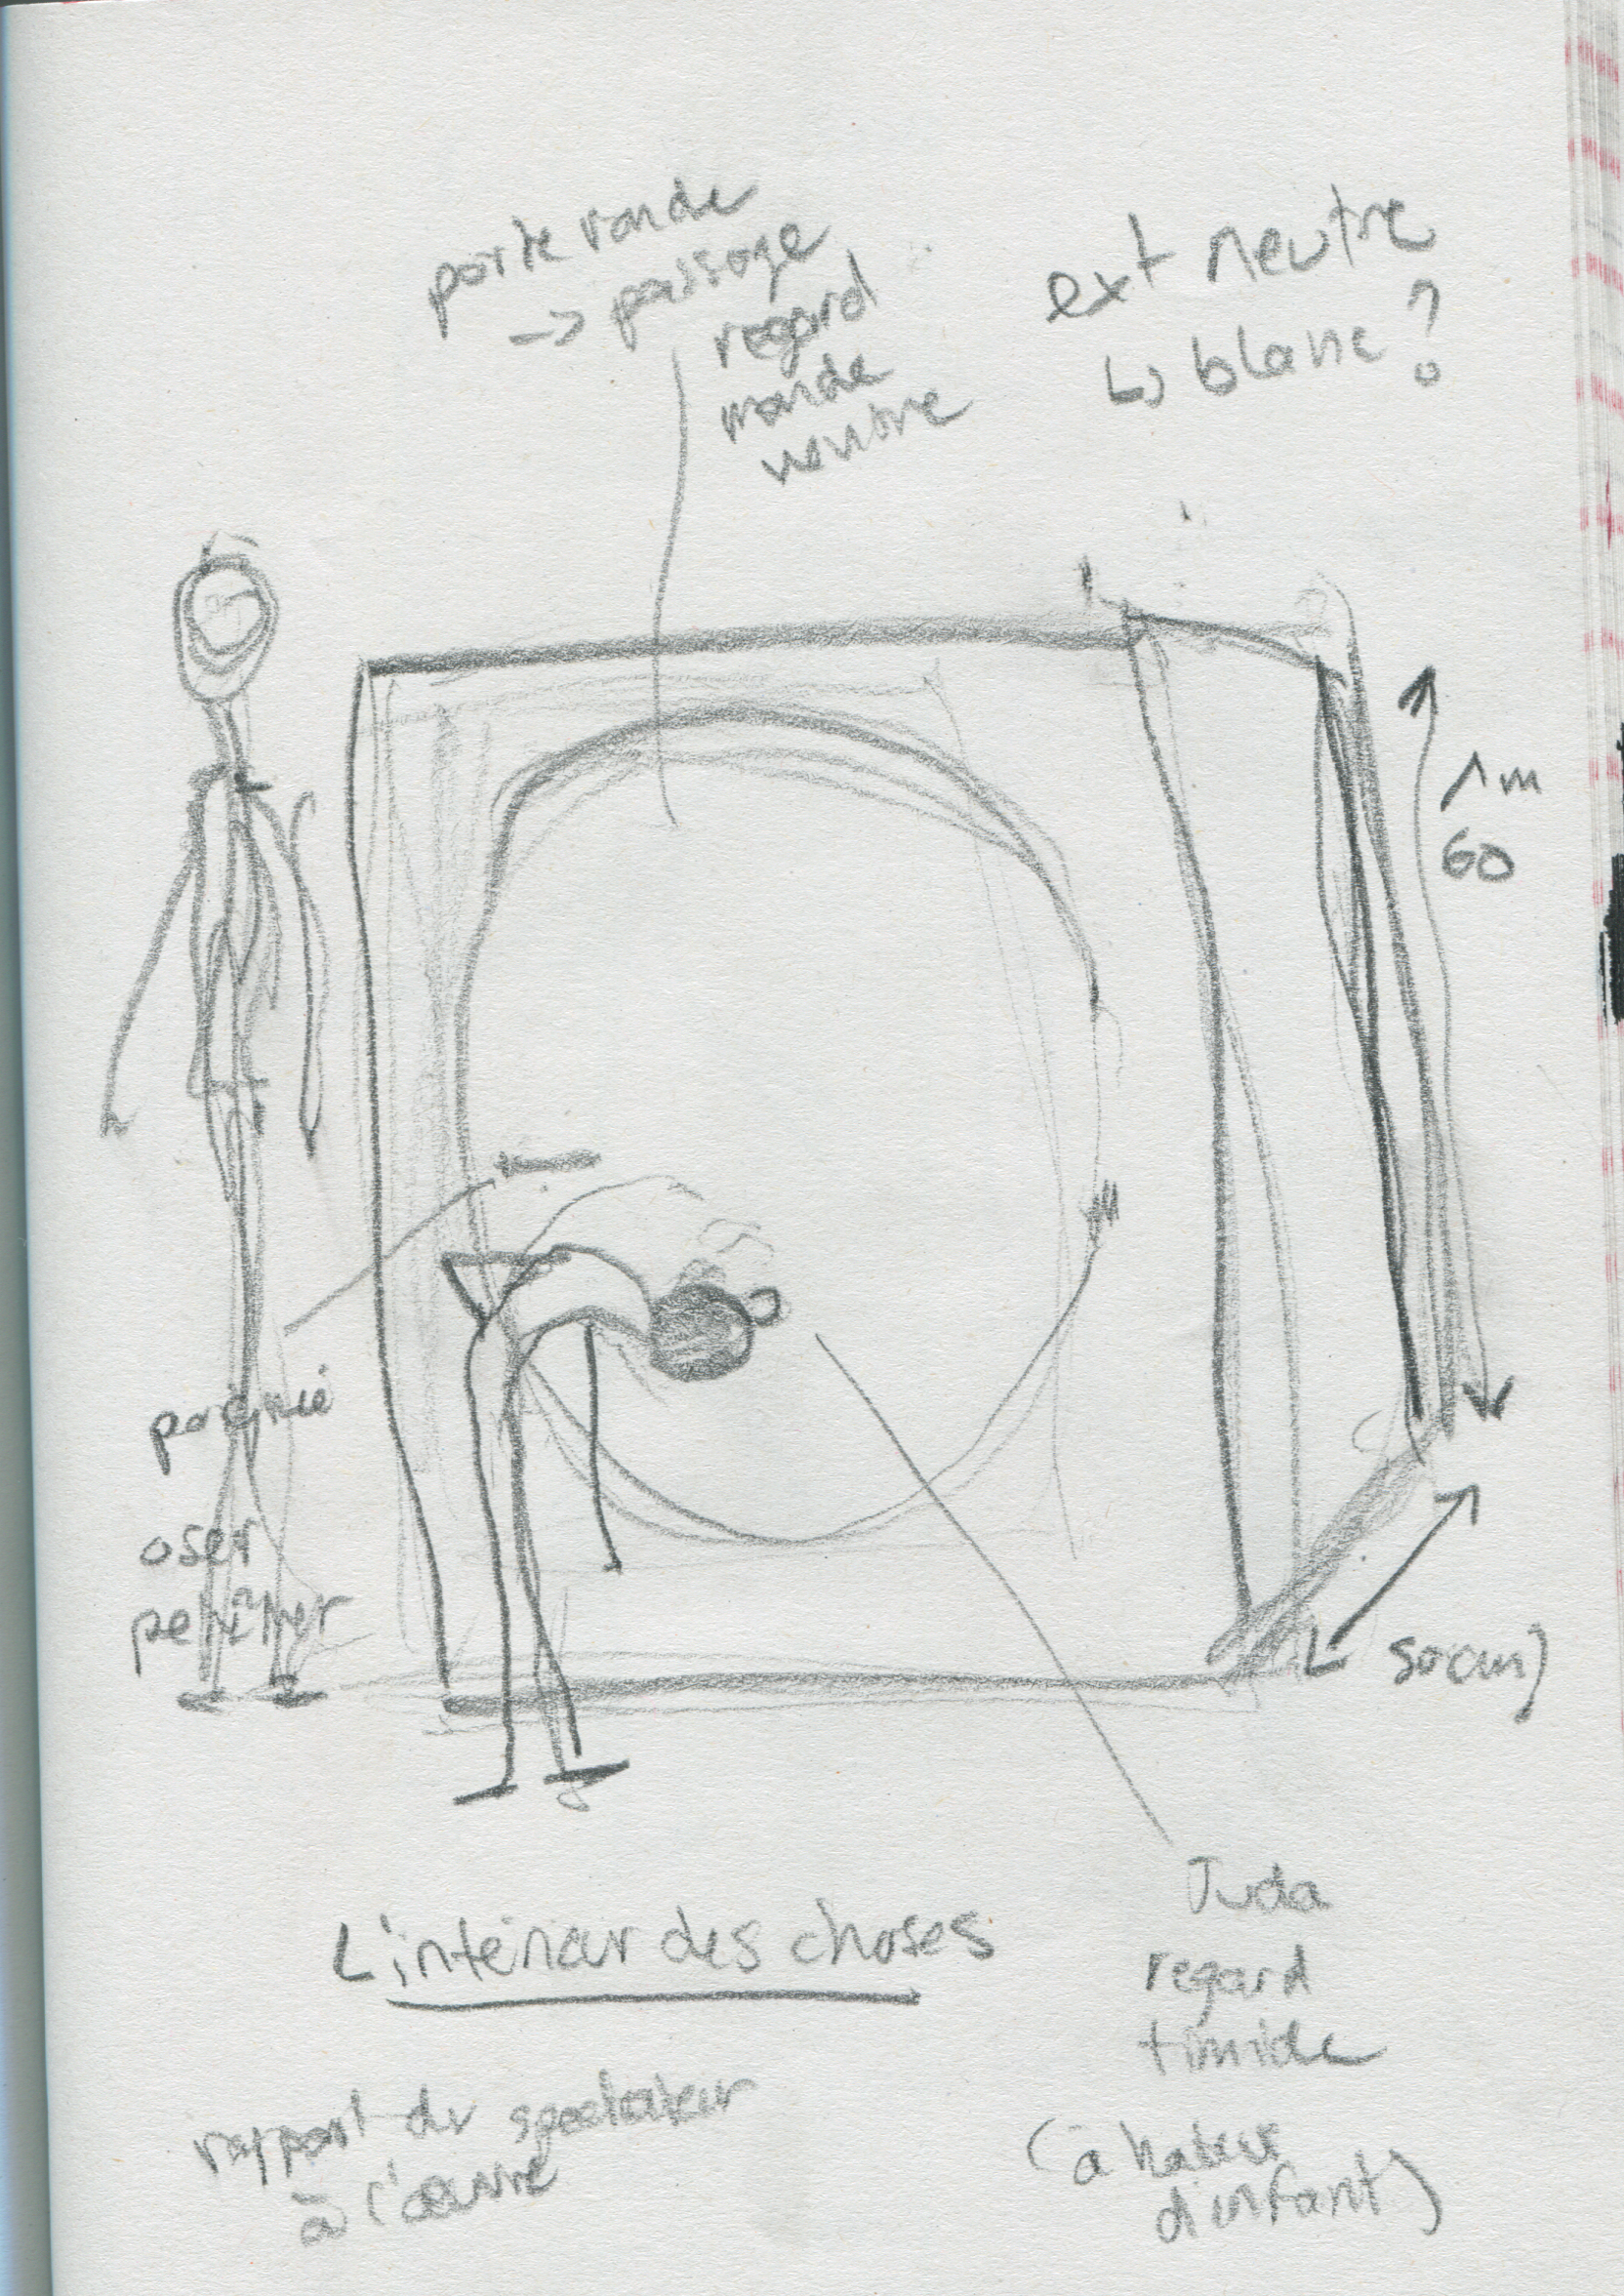 porte ronde
-> passage
regard
monde
ventre
ext neutre
↳ blanc ?
1m
60
50cm
poignée
oser
pénétrer
L'intérieur des choses
rapport du spectateur
à l'œuvre
Juda
regard
timide
(à hauteur
d'enfant)